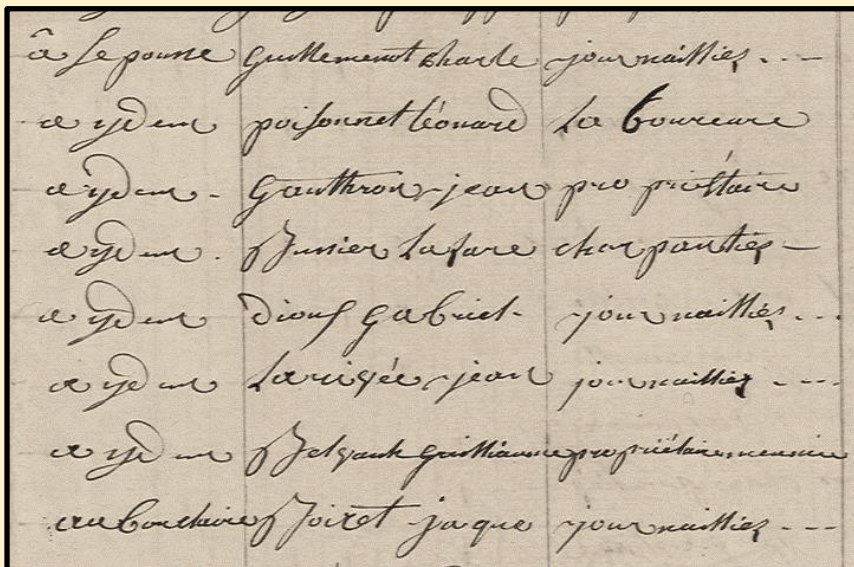 â Lepousse Guillemenot Charle journaillier - - -
a ydem poisonnet Léonard La boureure
a ydem - Gauthron jean propriétaire
a ydem . Bussier Lasare charpantier -
a ydem dious gabriel - journaillier - - -
a ydem Larivée jean journaillier - - -
a ydem guilliaume propriétaire meunier
au Boiret jaque journaillier - - -